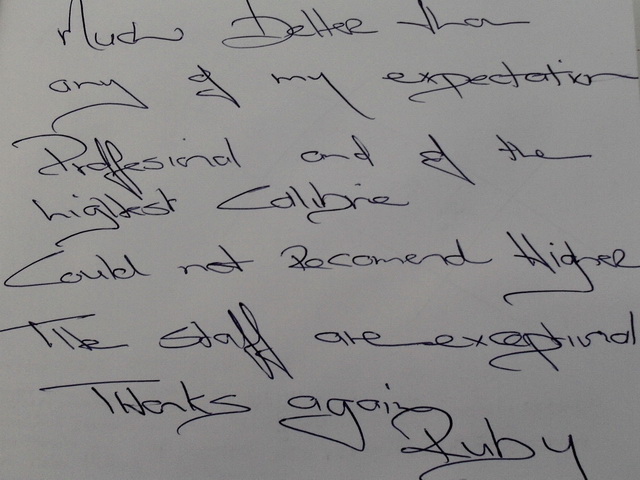 Much Better than
any of my expectation
Proffesional and of the
highest Calibrie
Could not Recomend Higher
The staff are exceptional
Thanks again
Ruby